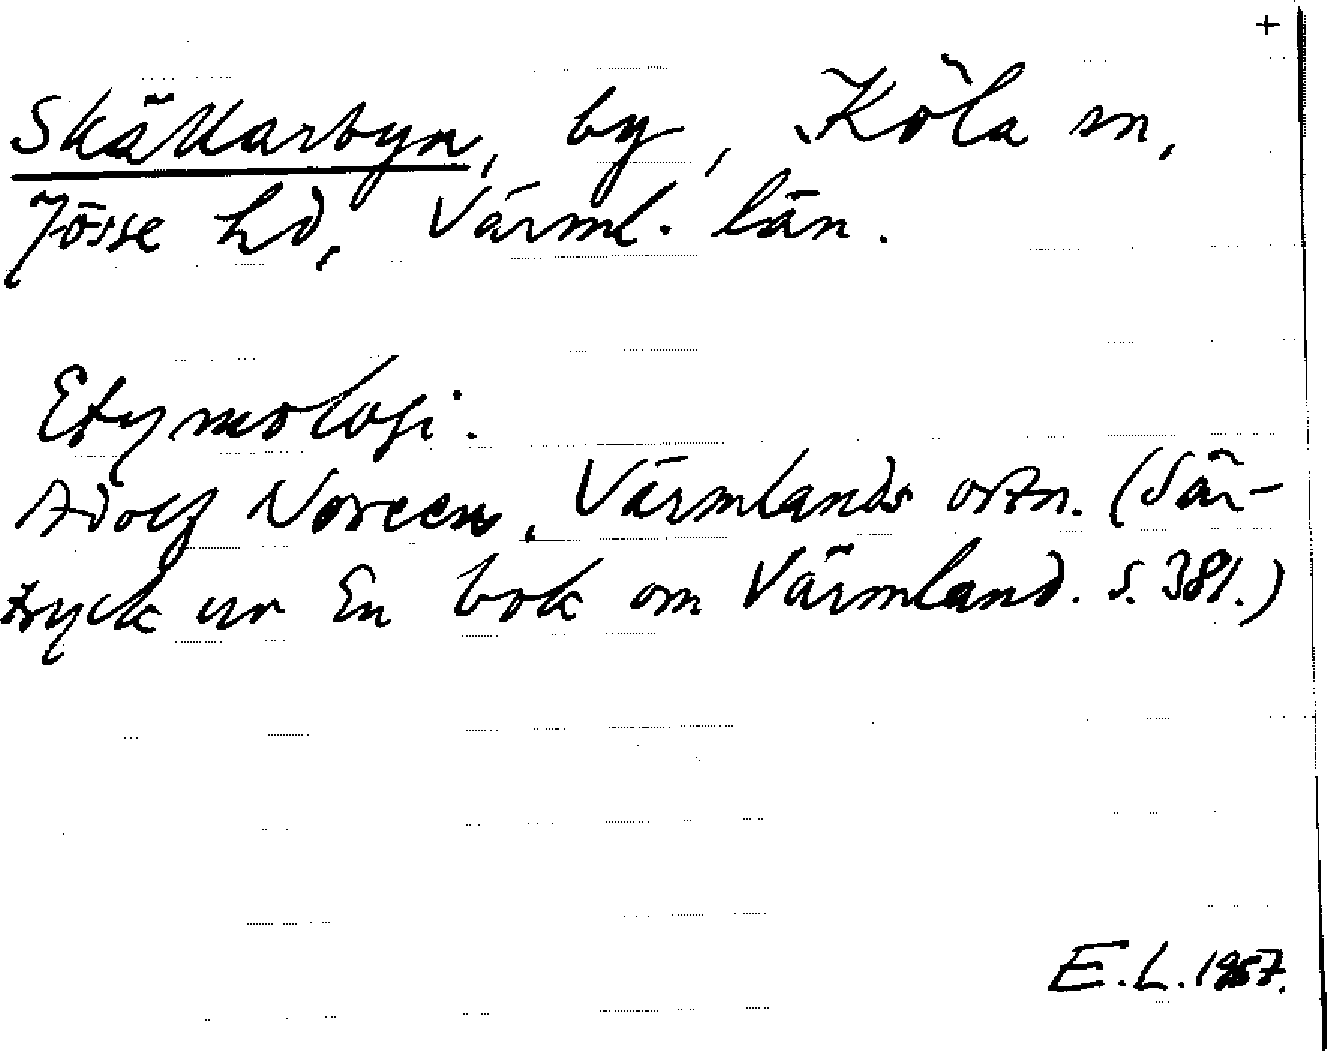 +
Skällarbyn, by, Köla sn,
Jösse hd, Värml. län.
Etymologi.
Adolf Noreen, Värmlands ortn. (Sär-
tryck ur En bok om Värmland. S. 381.)
E.L. 1957.